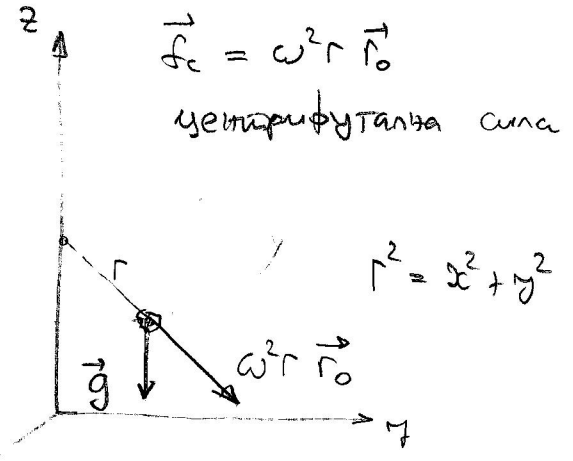 z
f⃗c = ω²r r⃗₀
центрифугална сила
r² = x² + y²
r
g⃗
ω²r r⃗₀
y